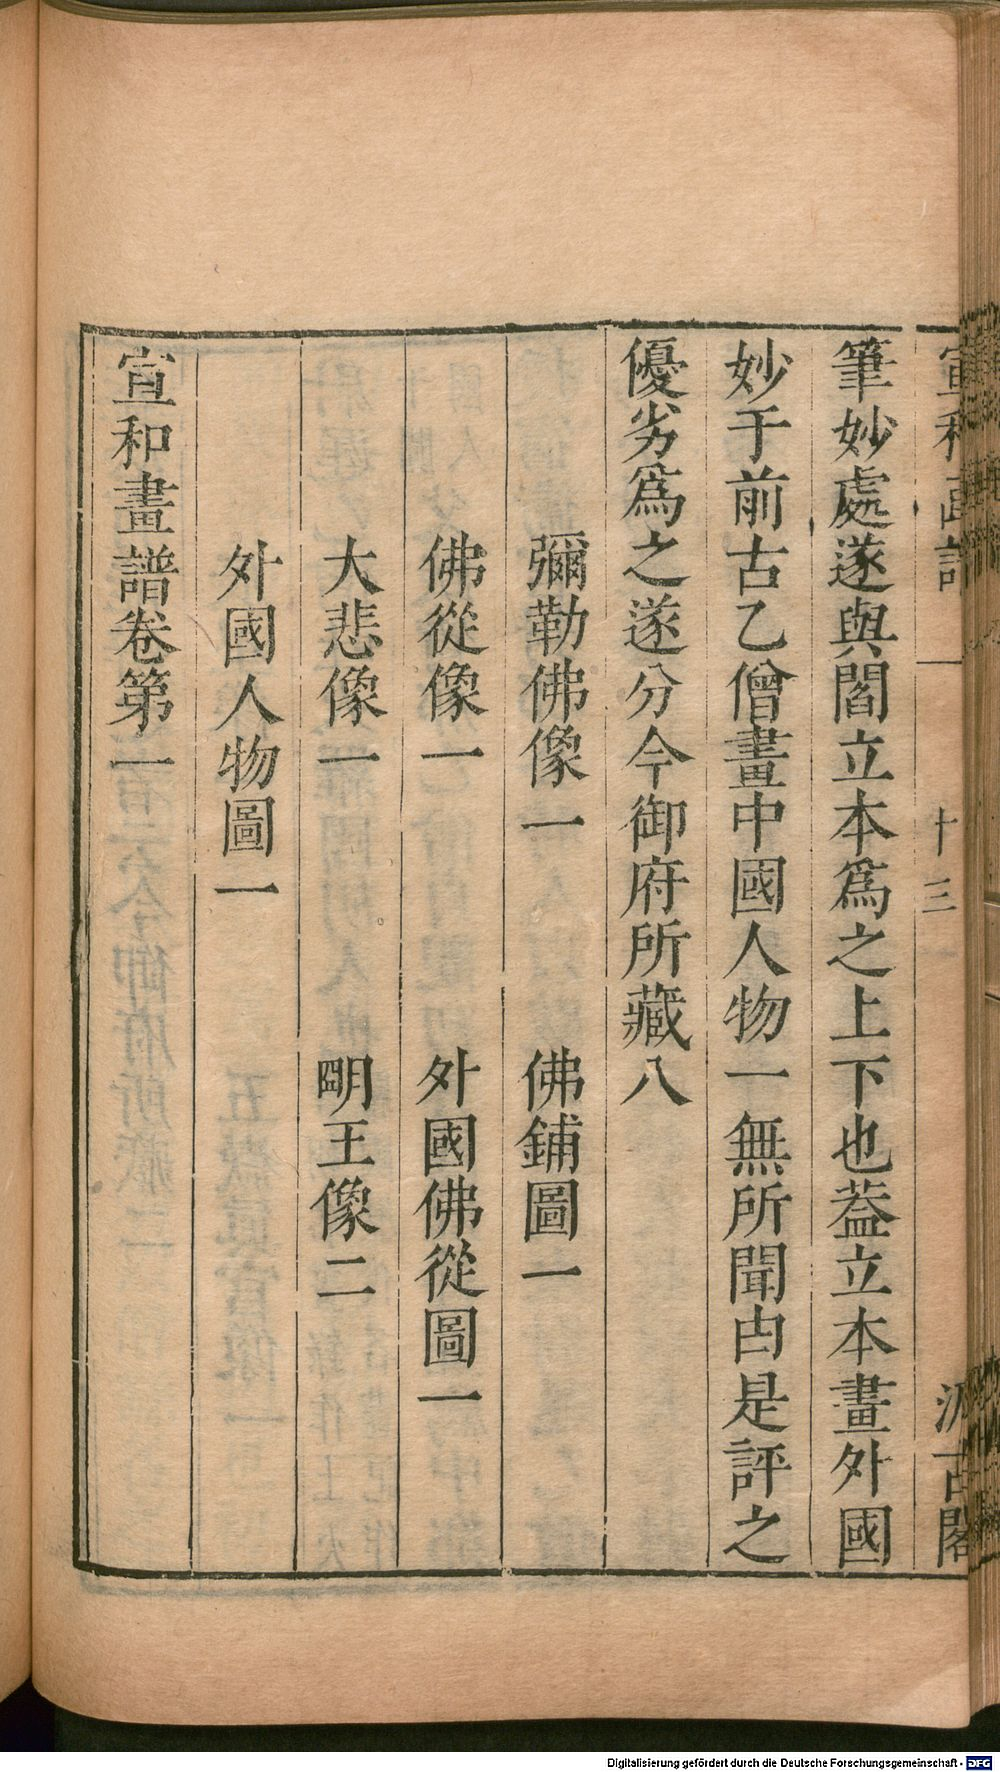 宣和畫譜 一 十三 汲古閣
筆妙處遂與閻立本爲之上下也葢立本畫外國
妙于前古乙僧畫中國人物一無所聞由是評之
優劣爲之遂分今御府所藏八
彌勒佛像一 佛鋪圖一
佛從像一 外國佛從圖一
大悲像一 明王像二
外國人物圖一
宣和畫譜卷第一
Digitalisierung gefördert durch die Deutsche Forschungsgemeinschaft - DFG